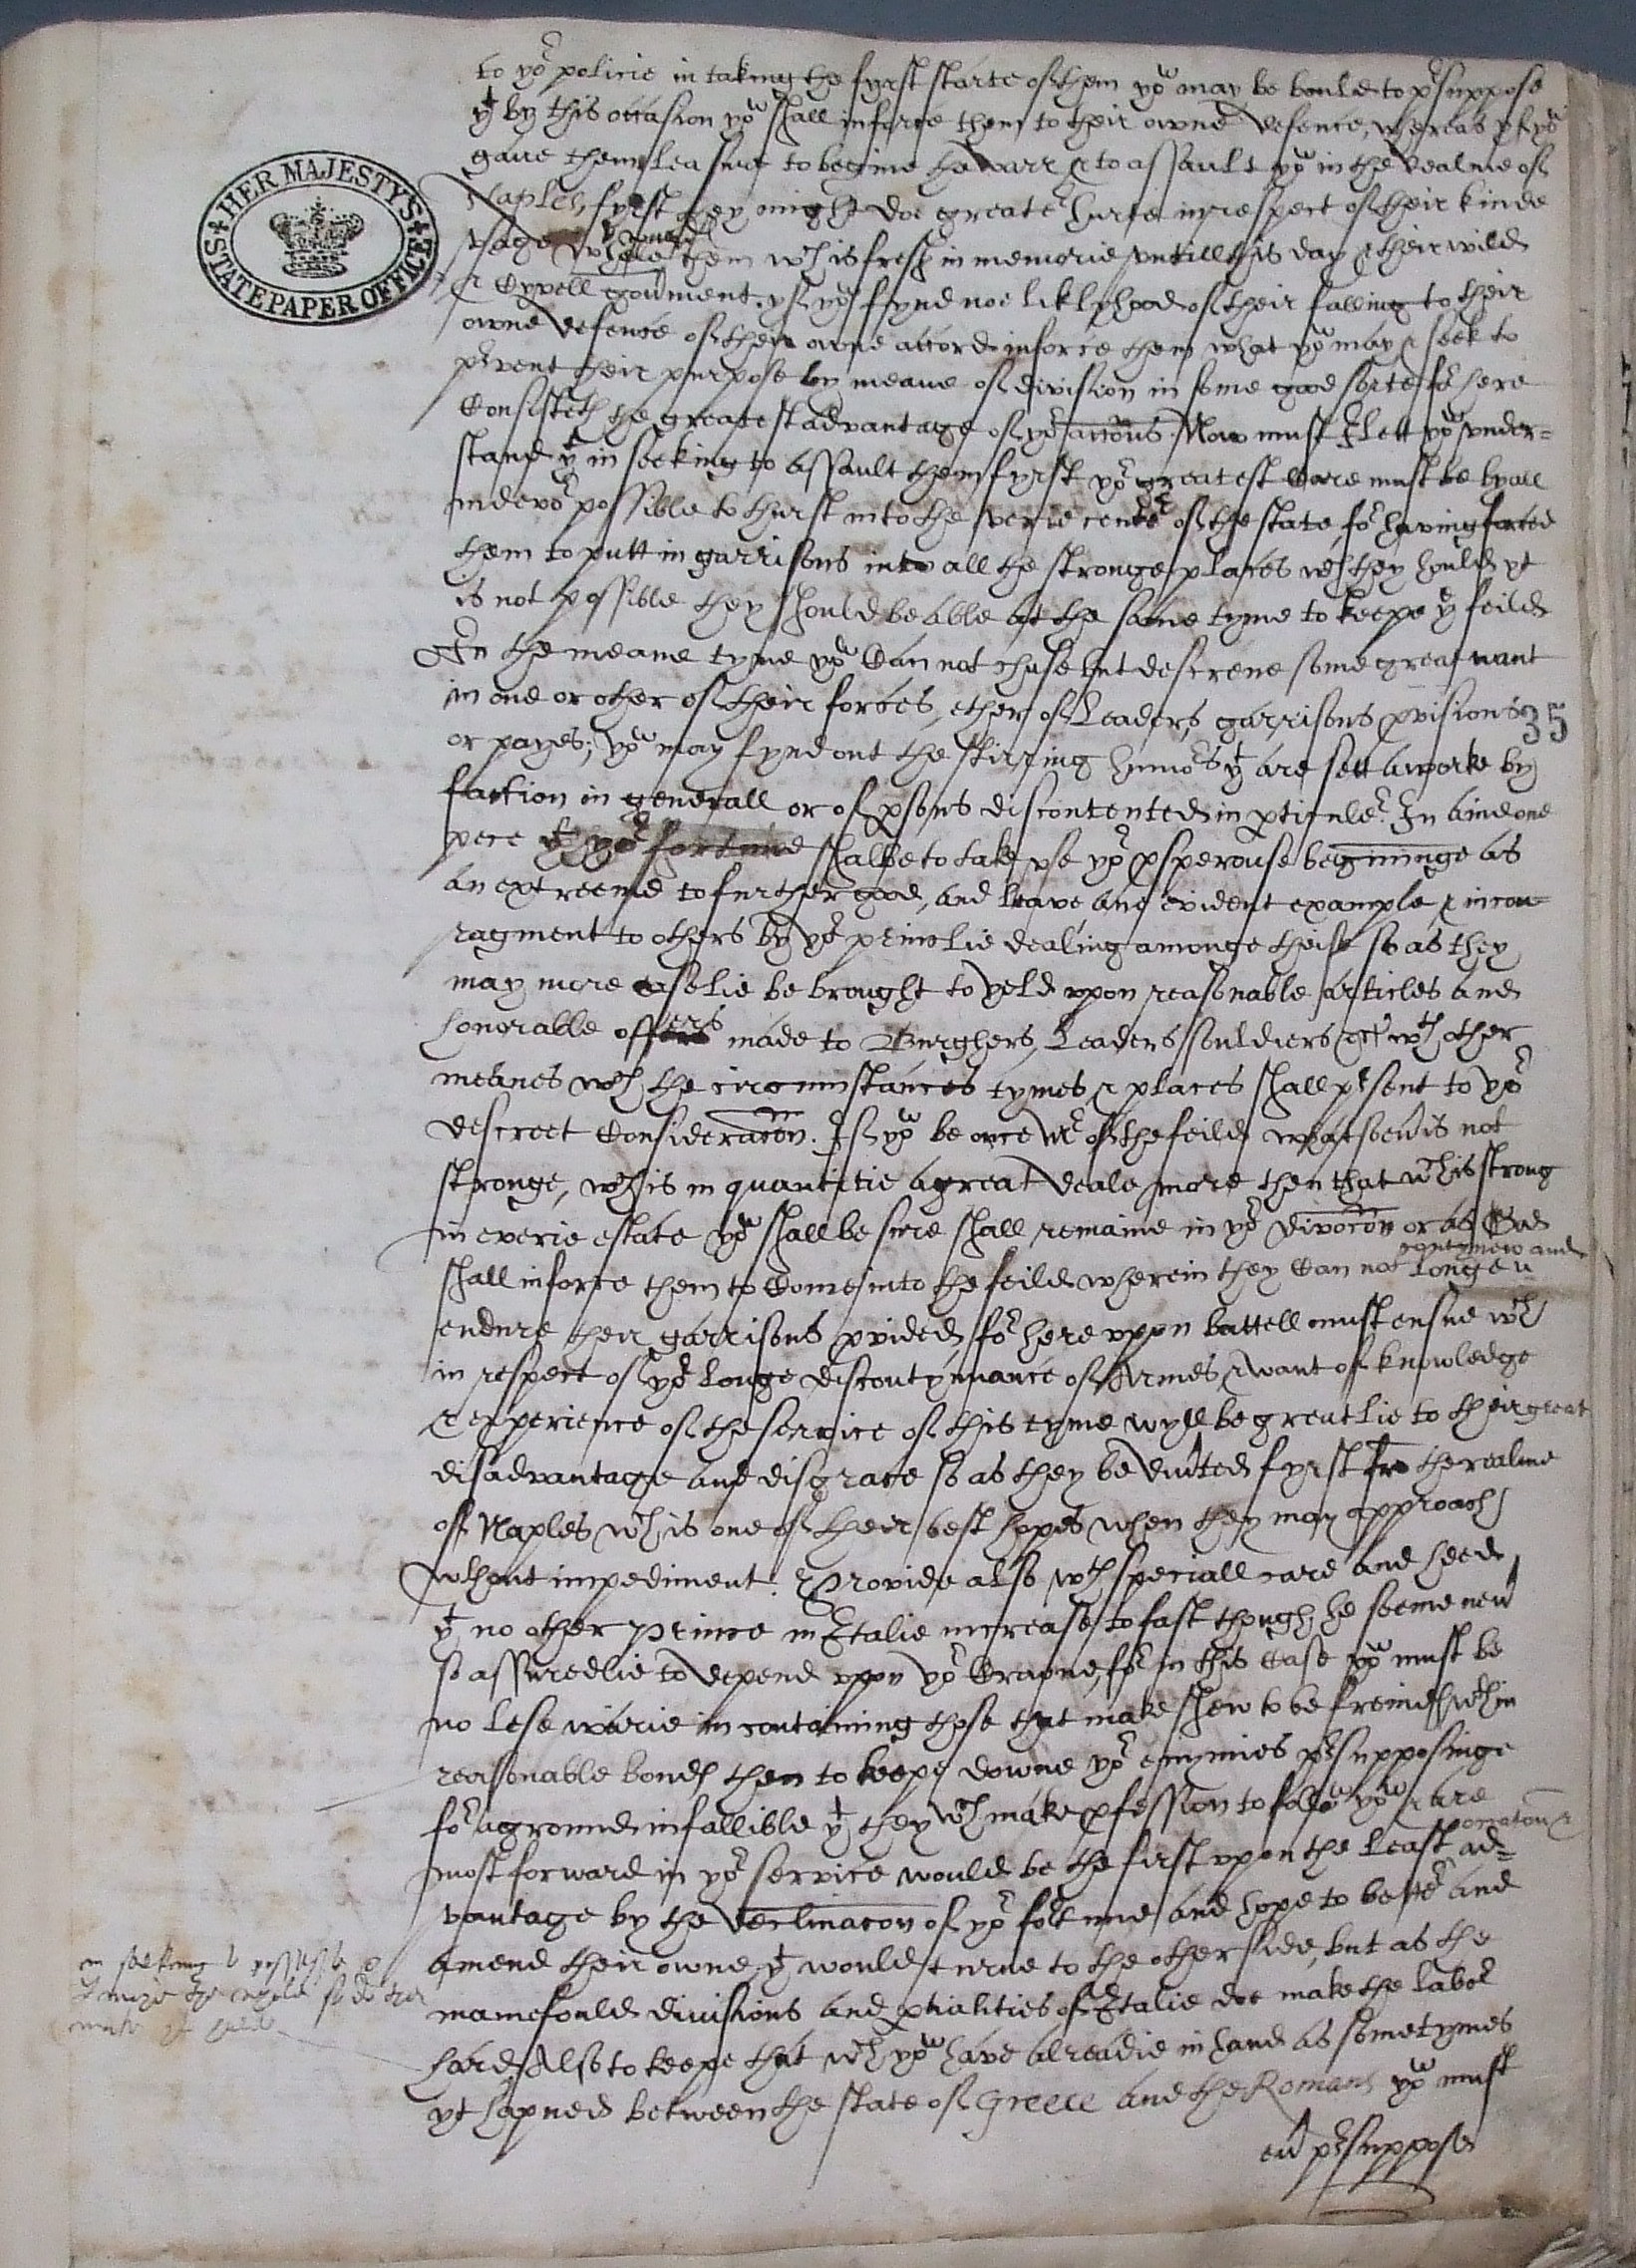 to yor policie in taking the fyrst starte of them yow may be bould to presuppose
yt by this occasion yow shall inforce them to their owne defence, whereas yf yow
gave them leasure to begine the warr & to assault yow in the realme of
Naples, fyrst they might doe greater hurte in respect of their kinde
usage towards them wch is fresh in memorie untill this day & their wild
& Cyvell goverment. yf yow fynd noe liklyhood of their falling to their
owne defence of their owne accord inforce them what yow may & seek to
prevent their purpose by meane of division in some good sorte for here
Consisteth the greatest advantage of yor accons. Now must I lett yow under=
stand yt in seeking to assault them fyrst yor greatest Care must be by all
indevor possible to thurst into the verie center of the state, for having forced
them to putt in garrisons into all the stronge places wch they hould yt
is not possible they should be able at the same tyme to keepe ye feild
In the meane tyme yow Can not chuse but descrene some great want
in one or other of their forces, ether of Leaders, garrisons provisions
35
or payes; yow may fynd out the stirring humors yt are sett aworke by
faction in generall or of persons discontented in perticuler. In aine one
pece yt yor fortune shalbe to take use yor prosperouse begininge as
an extreeme to further good, and leave ane evident example & incou=
ragment to others by yor princlie dealing amonge theise so as they
may more easelie be brought to yeld uppon reasonable articles and
honorable offers made to Burghers, Leaders souldiers etc wth other
meanes wch the circumstances tymes & places shall present to yor
descreet Consideracon. If yow be once Mr of the feild whatsoever is not
stronge, wch is in quantitie a great deale more then that wch is strong
in everie estate yow shall be sure shall remaine in yor divocon or as God
shall inforce them to Come into the feild wherein they Can not longer
contynew and
endure their garrisons provided, for here uppon battell must ensue wch
in respect of yor longe discontynuance of Armes, & want of knowledge
& experience of the service of this tyme wyll be greatlie to their great
disadvantage and disgrace so as they be united fyrst fro the realme
of Naples wch is one of their best hopes when they may approach
wthout impediment. Provide also wth speciall care and heed
yt no other prince in Italie increase to fast though he seeme never
so assuredlie to depend uppon yor Crowne, for in this Case yow must be
no lese warie in containing those that make shew to be freinds wthin
reasonable bonds then to keepe downe yor enymies presupposinge
for a ground infallible yt they wch make profession to folow yow & are
most forward in yor service would be the first upon the least ad=
vantage by the declinacon of yor fortune and hope to better and
amend their owne yt would turne to the other side, but as the
manefould divisions and partialities of Italie doe make the labor
in seeking to possesse
hard, Also to keepe that wch yow have alreadie in hand as sometymes
yt hapned between the state of Greece and the Romans yow must
ever presuppose
HER MAJESTY'S STATE PAPER OFFICE